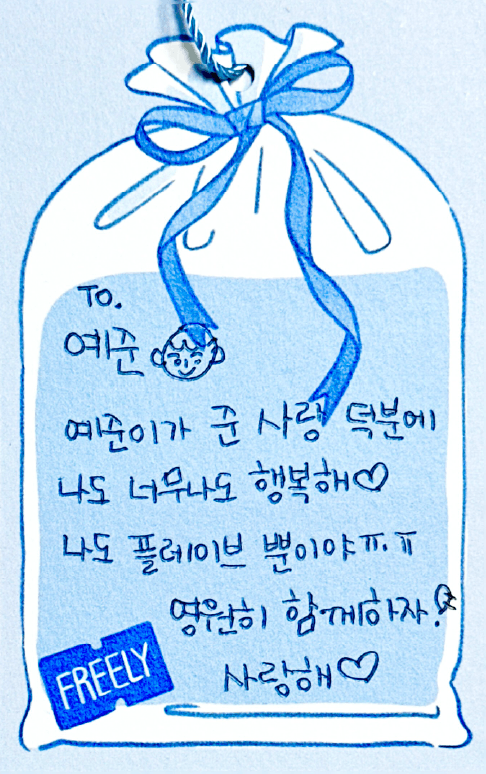 TO.
예준
예준이가 준 사랑 덕분에
나도 너무나도 행복해♡
나도 플레이브 뿐이야ㅠ.ㅠ
영원히 함께하자!
사랑해♡
FREELY